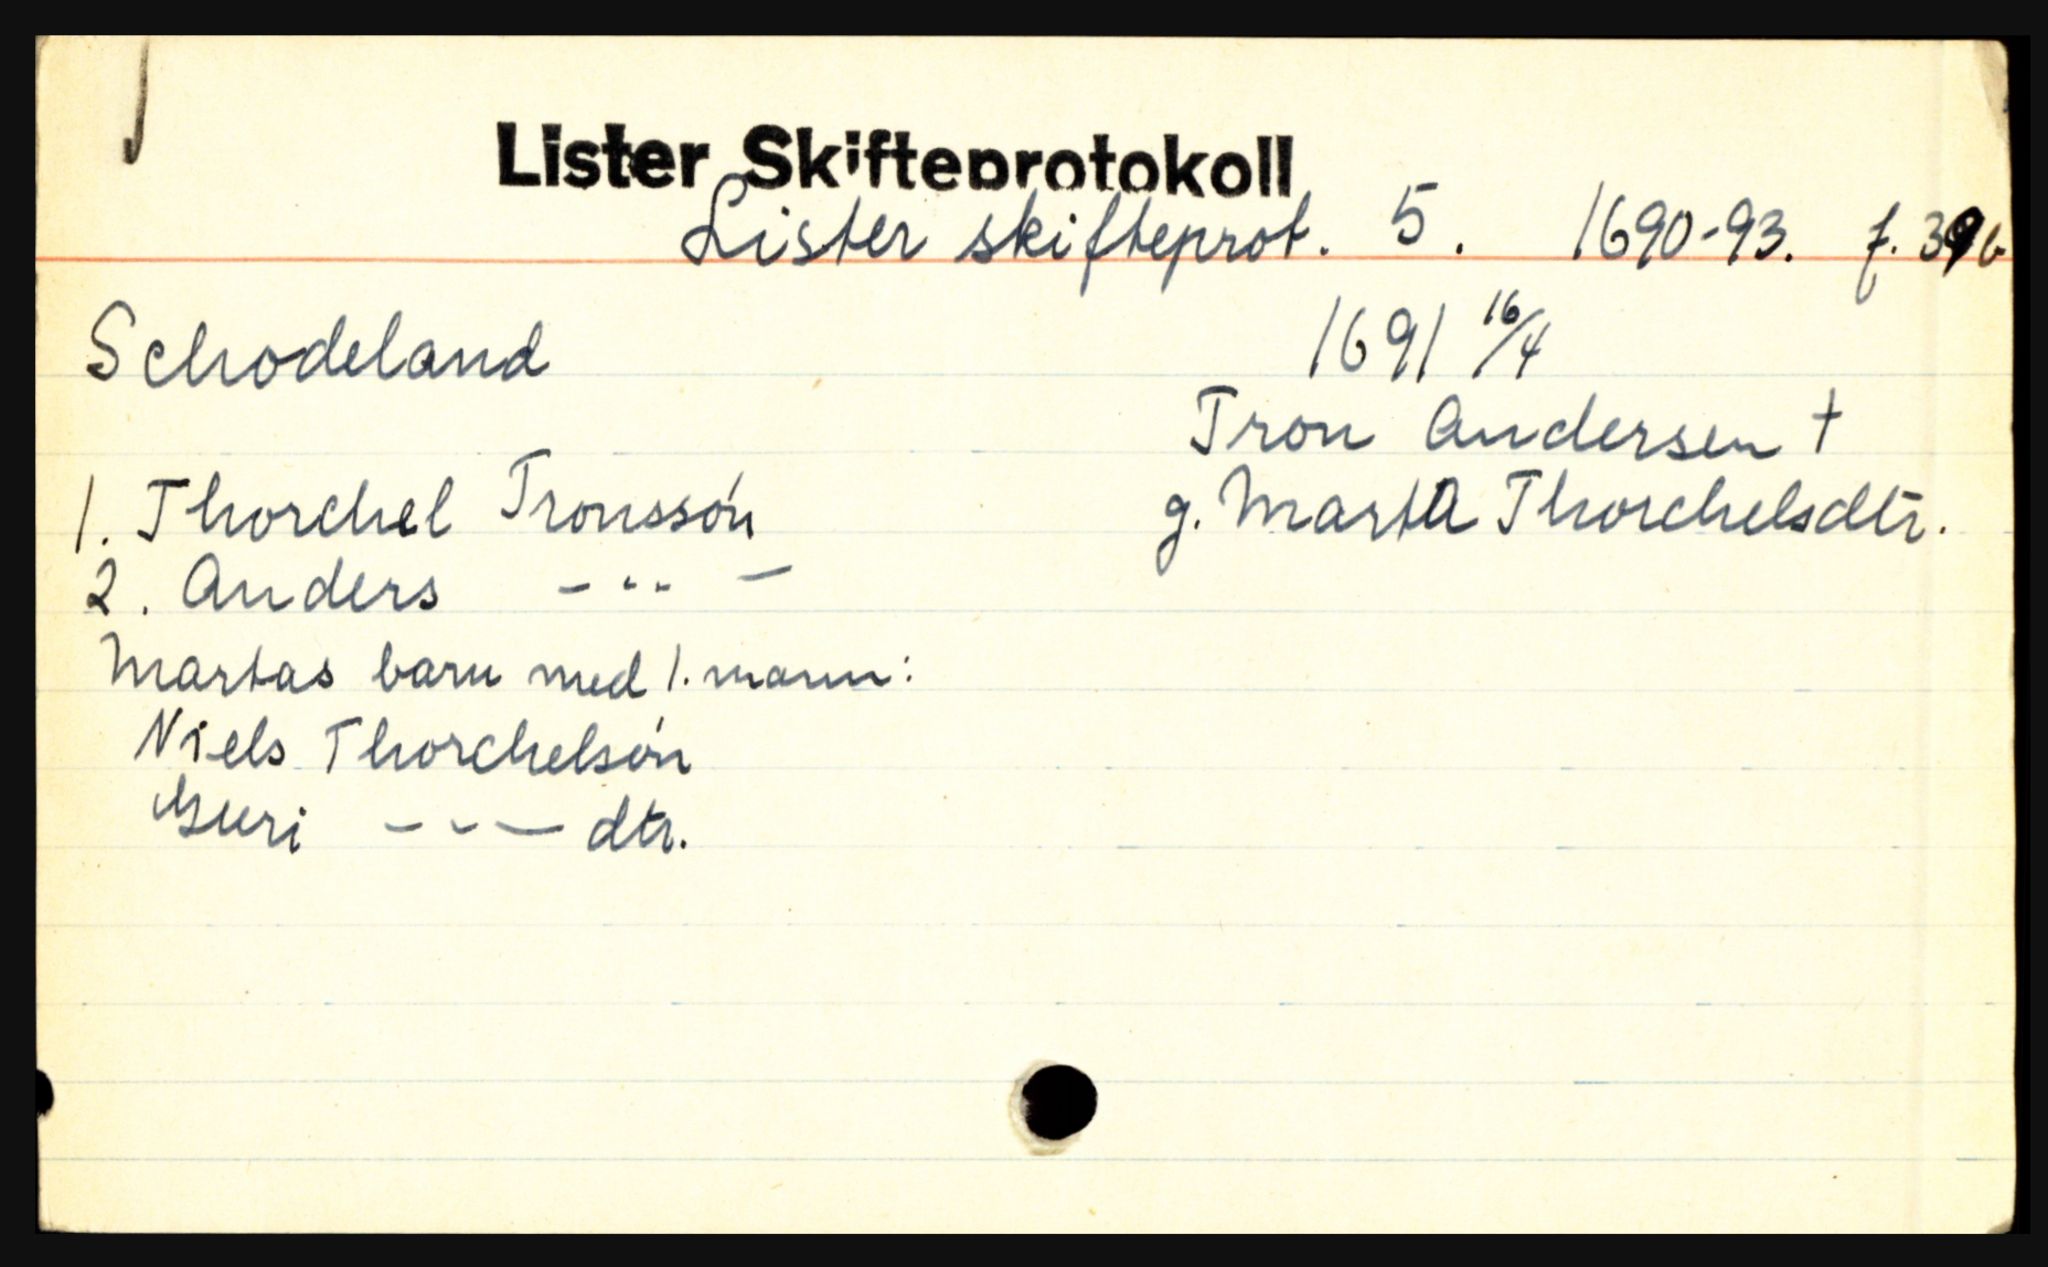 Lister Skifteprotokoll
Lister skifteprot. 5. 1690-93. f.
Schodeland 1691 16/4
Tron Andersen †
g. Marta Thorchelsdtr.
1. Thorchel Tronssón
2. Anders - " -
Martas barn med 1. mann:
Niels Thorchelsón
Guri - - - dtr.